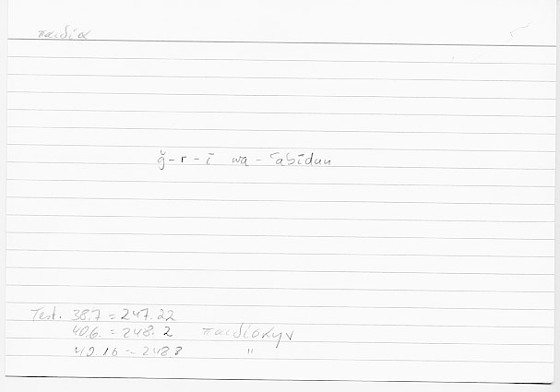 παιδία
ǧ-r-ī wa-ʿabīdun
Test. 38.7 = 247.22
40.6. = 248.2 παιδίσκην
40.16 = 248.8 "